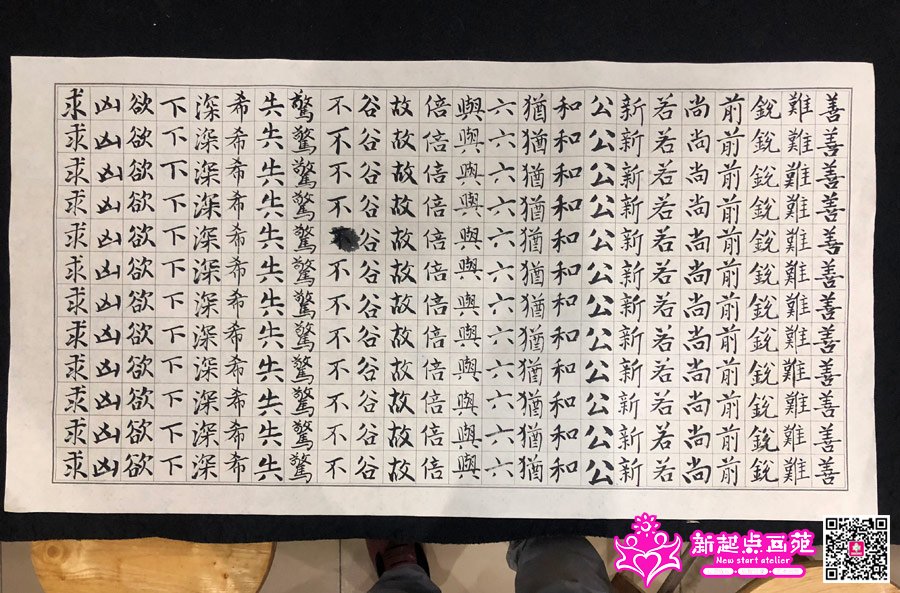 善善善善善善善善善善善善
難難難難難難難難難難難難
銳銳銳銳銳銳銳銳銳銳銳銳
前前前前前前前前前前前前
尚尚尚尚尚尚尚尚尚尚尚尚
若若若若若若若若若若若若
新新新新新新新新新新新新
公公公公公公公公公公公公
和和和和和和和和和和和和
猶猶猶猶猶猶猶猶猶猶猶猶
六六六六六六六六六六六六
輿輿輿輿輿輿輿輿輿輿輿輿
倍倍倍倍倍倍倍倍倍倍倍倍
故故故故故故故故故故故故
谷谷谷谷谷谷谷谷谷谷谷谷
不不不不不不不不不不不
驚驚驚驚驚驚驚驚驚驚驚驚
共共共共共共共共共共共共
希希希希希希希希希希希希
深深深深深深深深深深深深
下下下下下下下下下下下下
欲欲欲欲欲欲欲欲欲欲欲欲
凶凶凶凶凶凶凶凶凶凶凶凶
求求求求求求求求求求求求
新起点画苑
New start atelier